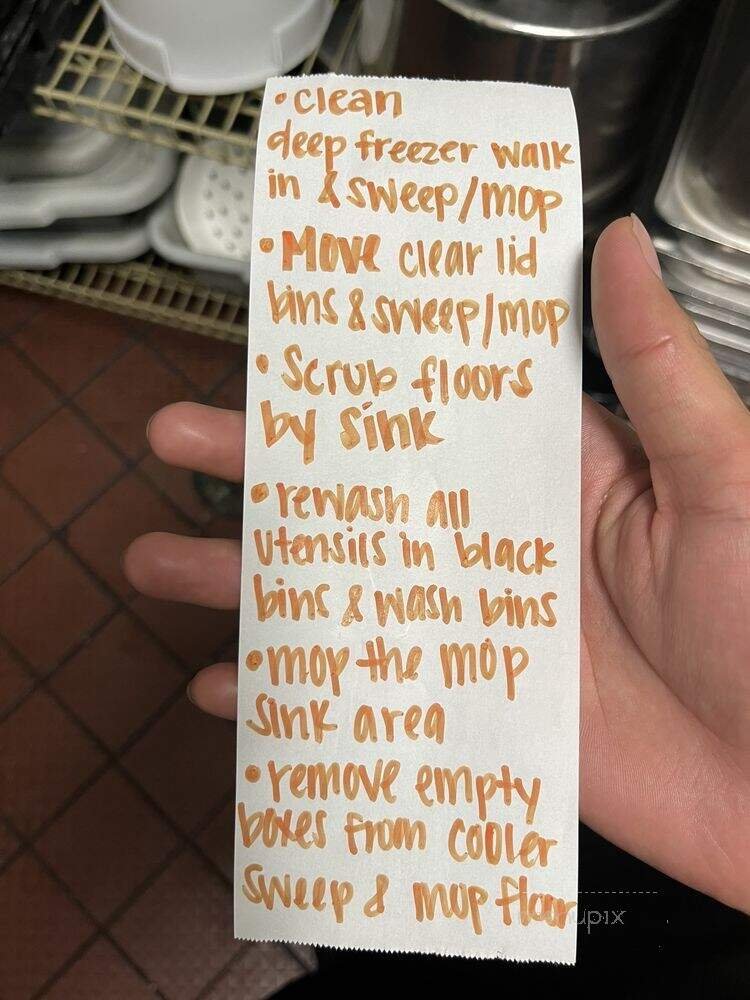 • clean
deep freezer walk
in & sweep/mop
• Move clear lid
bins & sweep/mop
• Scrub floors
by sink
• rewash all
utensils in black
bins & wash bins
• mop the mop
sink area
• remove empty
boxes from cooler
sweep & mop floor